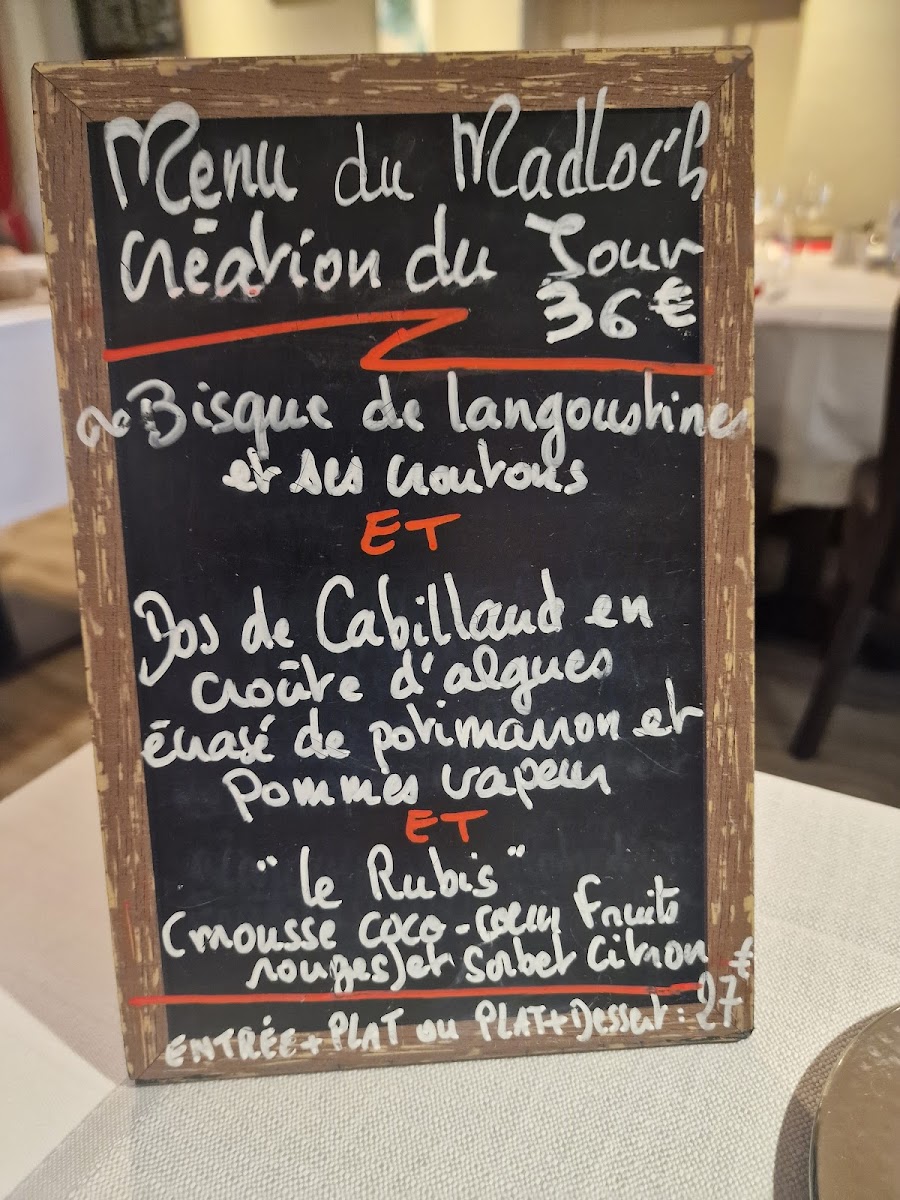 Menu du Madloc'h
Création du Jour
36€
~ Bisque de langoustines
et ses croutons
ET
Dos de Cabillaud en
croûte d'algues
écrasé de potimarron et
Pommes vapeur
ET
"le Rubis"
(mousse coco-coeur Fruits
rouges) et Sorbet Citron
ENTRÉE + PLAT ou PLAT + Dessert : 27€